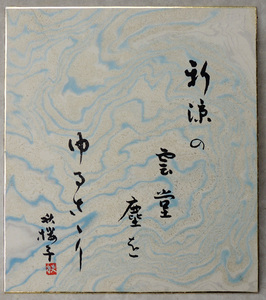 新涼の
雲堂塵を
ゆるさゞり
秋櫻子